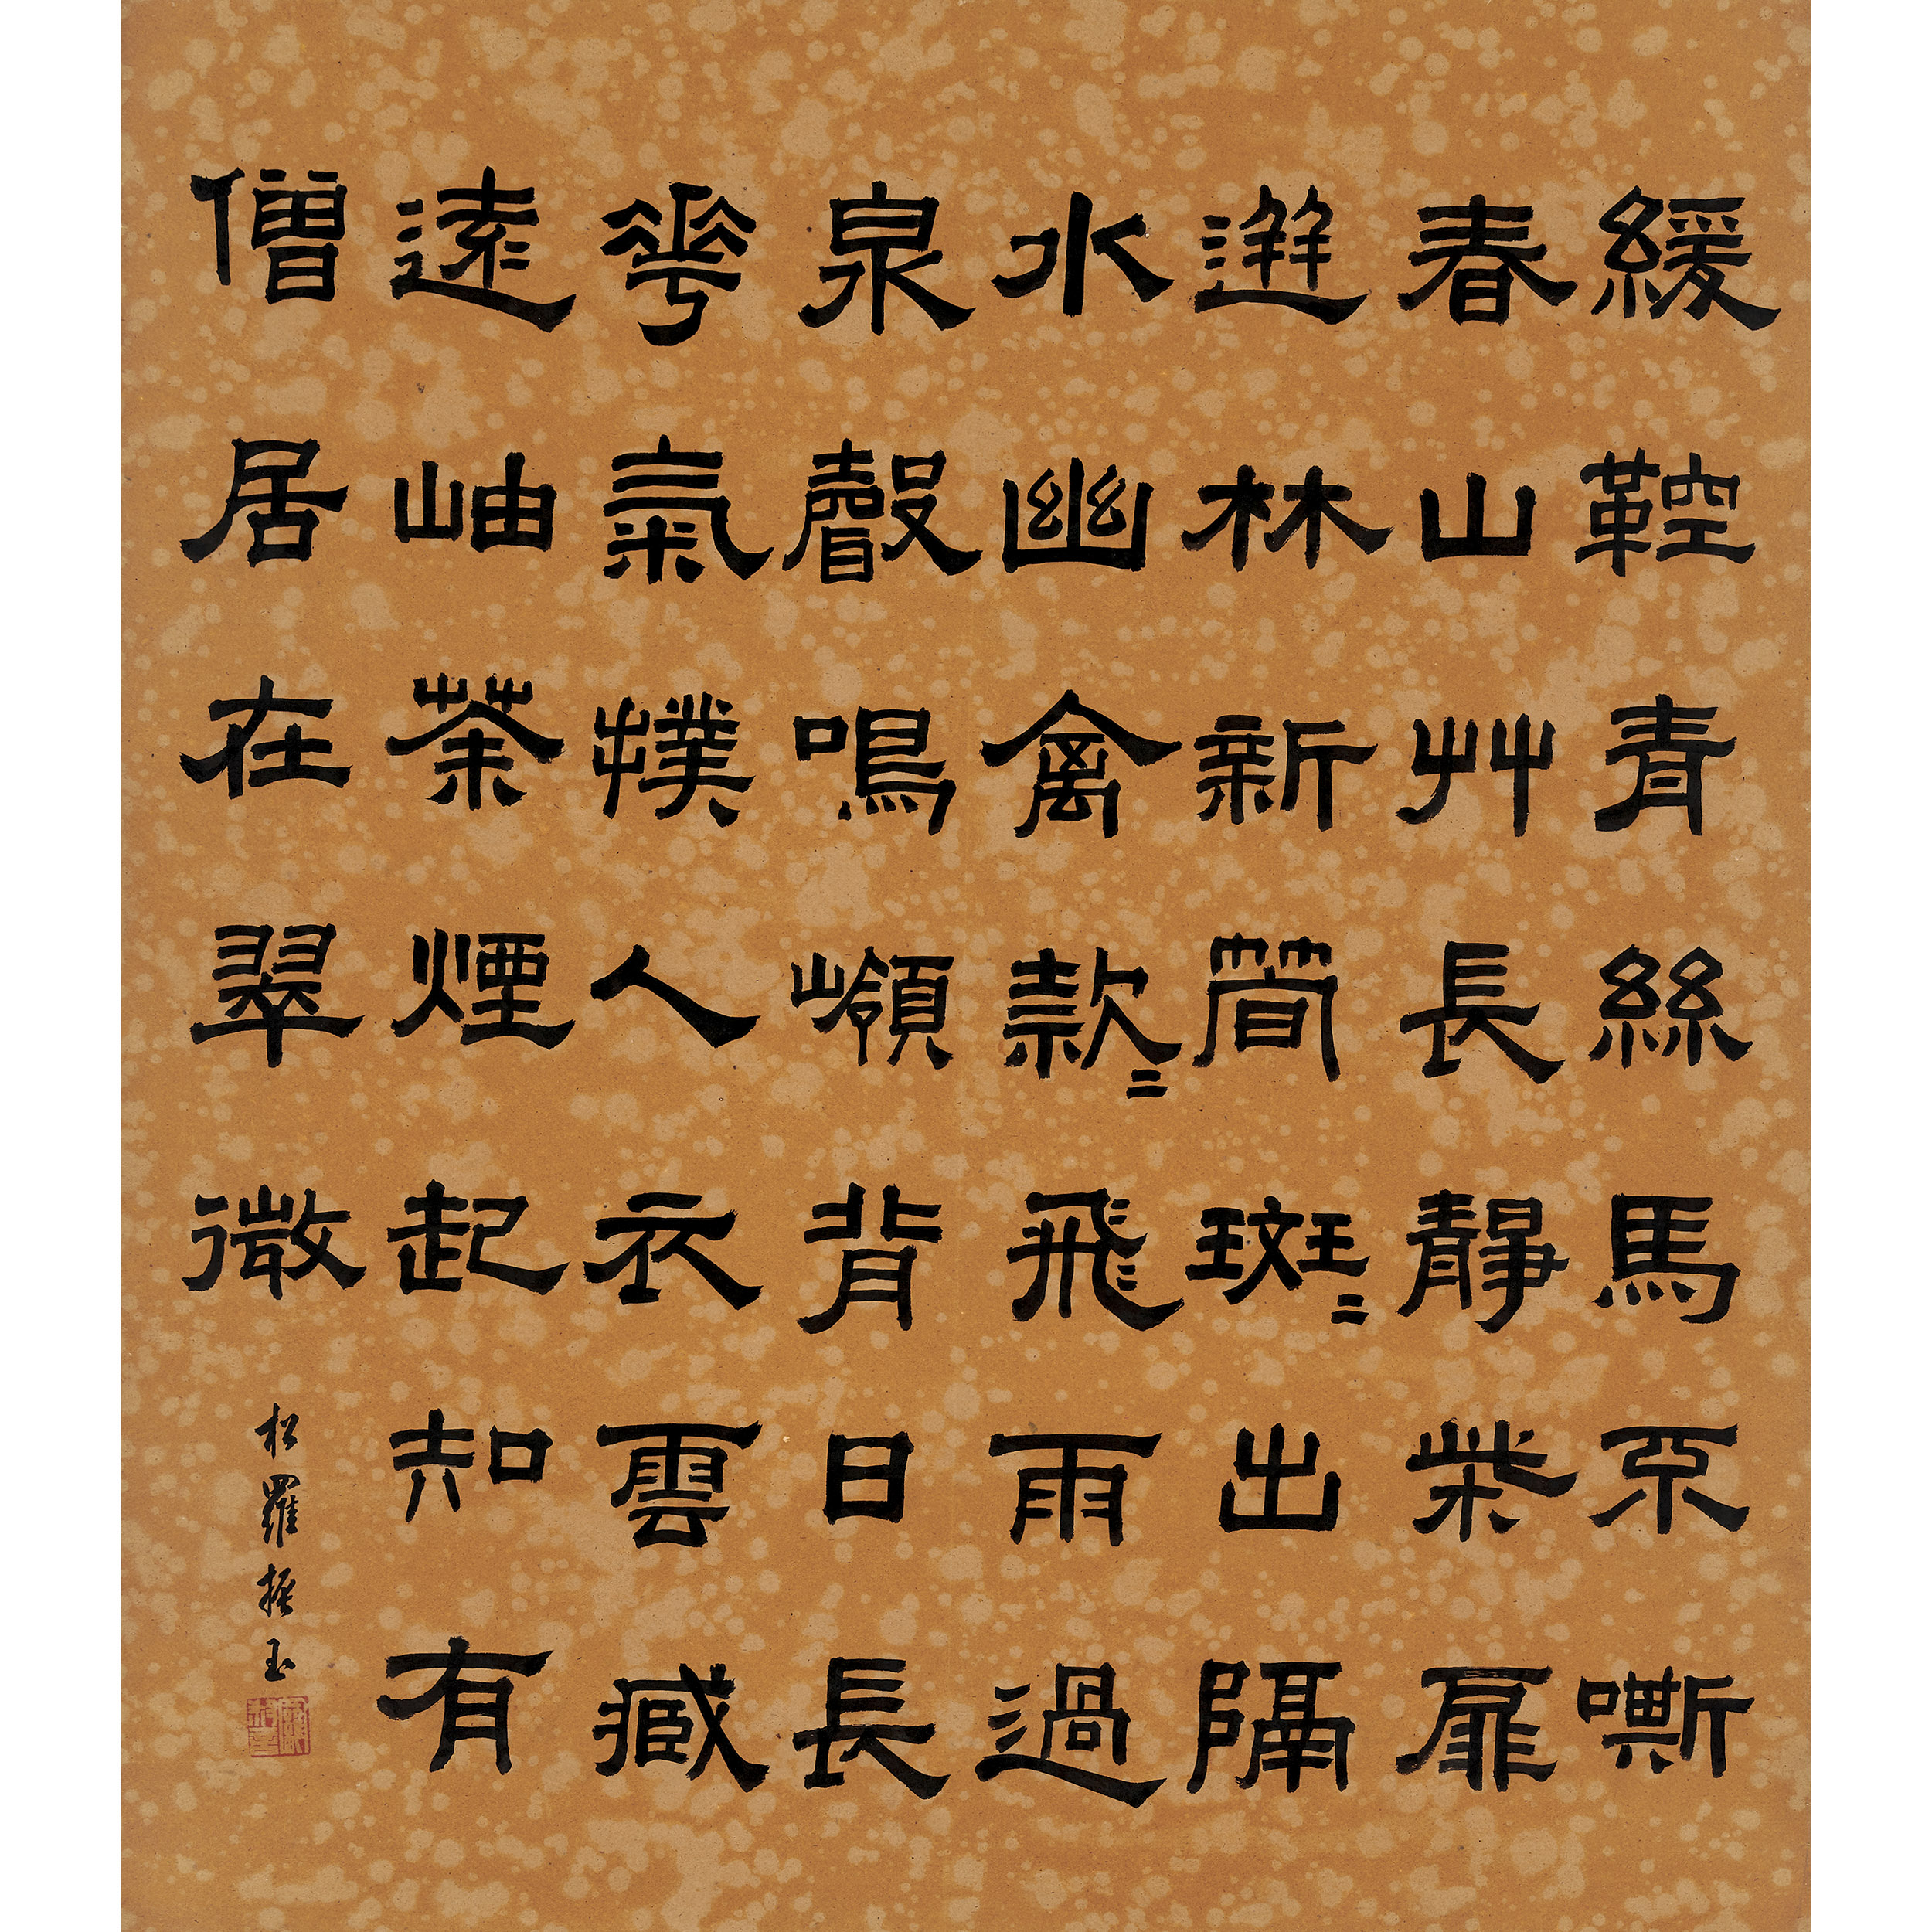 緩鞚青絲馬不嘶
春山艸長靜柴扉
逬林新筍斑〻出隔
水幽禽款〻飛雨過
泉聲鳴嶺背日長
華氣撲人衣雲臧
遠岫茶煙起知有
僧居在翠微
松羅振玉